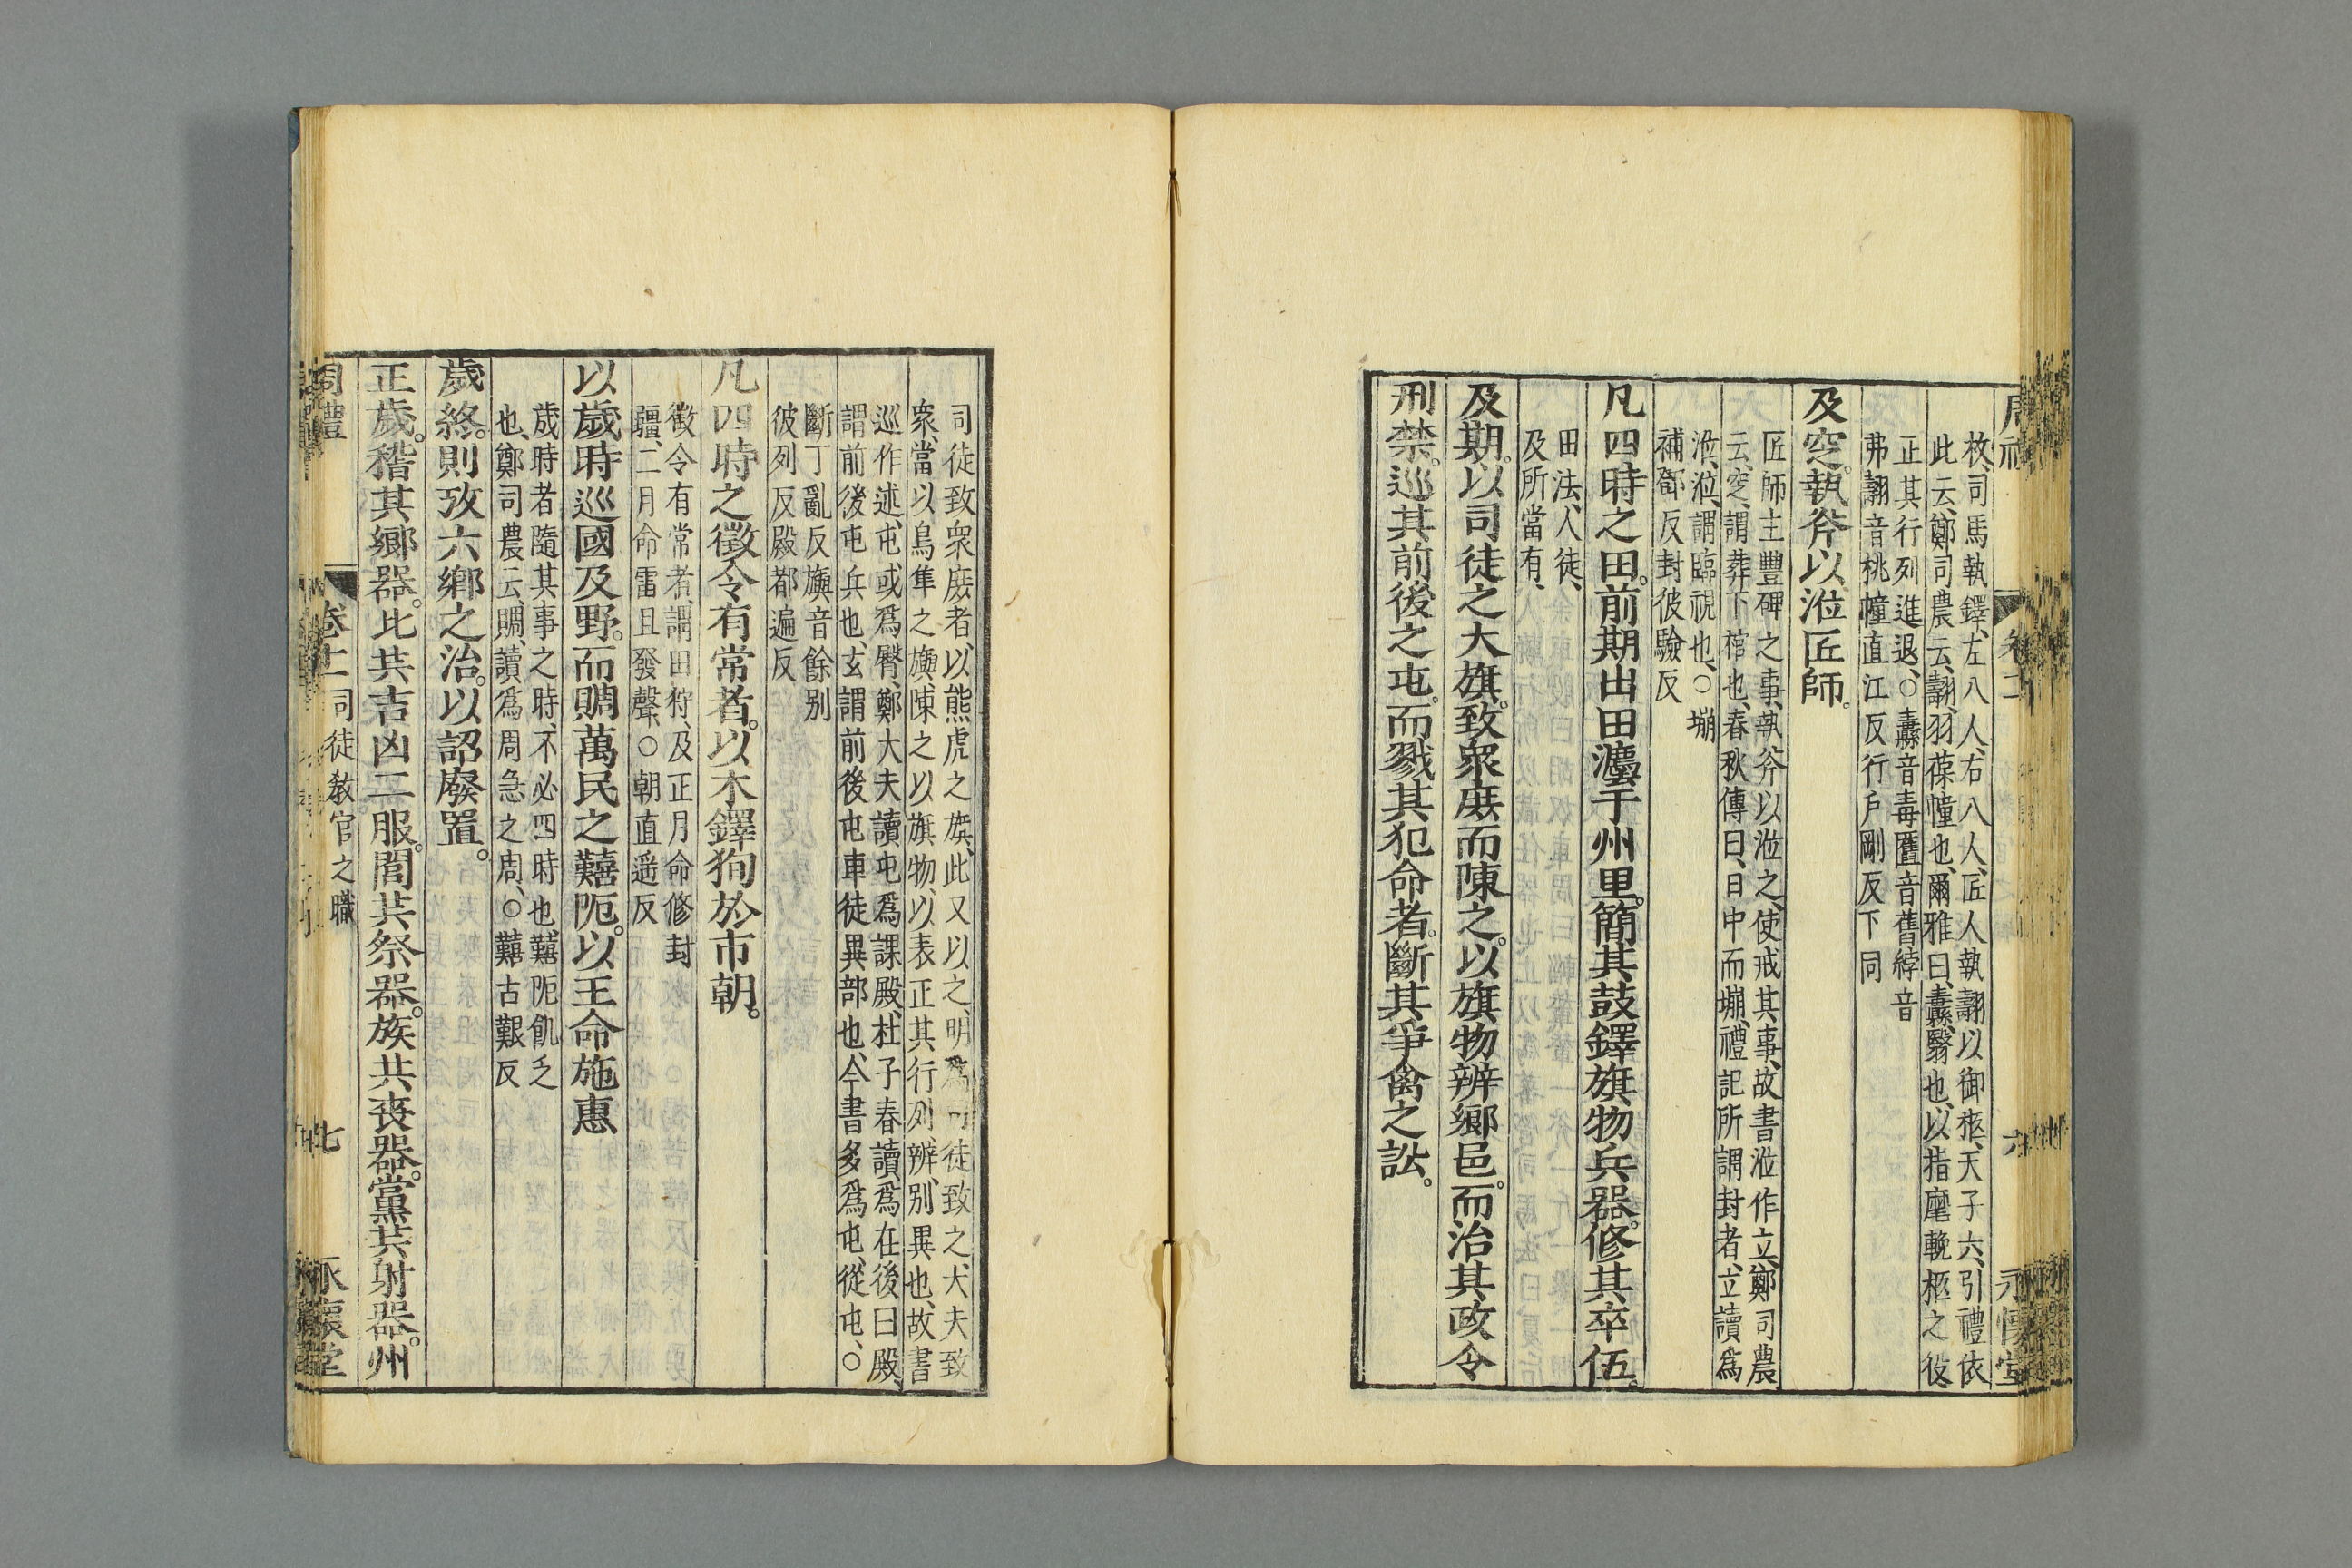 枚、司馬執鐸、左八人、右八人、匠人執翿以御柩、天子六、引禮依
此云、鄭司農云、翿、羽葆幢也、爾雅曰、纛、翳也、以指麾輓柩之役、
正其行列進退、○纛音毒匶音舊綍音
弗翿音桃幢直江反行戶剛反下同
及窆。執斧以涖匠師。
匠師主豐碑之事、執斧以涖之、使戒其事、故書涖作立、鄭司農
云、窆、謂葬下棺也、春秋傳曰、日中而塴、禮記所謂封者、立讀爲
涖、涖、謂臨視也、○塴
補鄧反封彼驗反
凡四時之田。前期出田灋于州里。簡其鼓鐸旗物兵器。修其卒伍。
田法、人徒、
及所當有、
及期。以司徒之大旗。致衆庶而陳之。以旗物辨鄉邑。而治其政令
刑禁。巡其前後之屯。而戮其犯命者。斷其爭禽之訟。
司徒致衆庶者、以熊虎之旗、此又以之、明爲司徒致之、大夫致
衆、當以鳥隼之旟、陳之以旗物、以表正其行列、辨、別異也、故書
巡作述、屯、或爲臀、鄭大夫讀屯爲課殿、杜子春讀、爲在後曰殿、
謂前後屯兵也、玄謂前後屯車徒異部也、今書多爲屯、從屯、○
斷丁亂反旟音餘別
彼列反殿都遍反
凡四時之徵令有常者。以木鐸徇於市朝。
徵令有常者、謂田狩、及正月命修封
疆、二月命雷且發聲、○朝直遥反
以歲時巡國及野。而賙萬民之囏阨。以王命施惠
歲時者隨其事之時、不必四時也、囏阨飢乏
也、鄭司農云、賙、讀爲周急之周、○囏古艱反
歲終。則攷六鄉之治。以詔廢置。
正歲。稽其鄉器。比共吉凶二服。閭共祭器。族共喪器。黨共射器。州
周禮 卷二 司徒教官之職 七 永懷堂